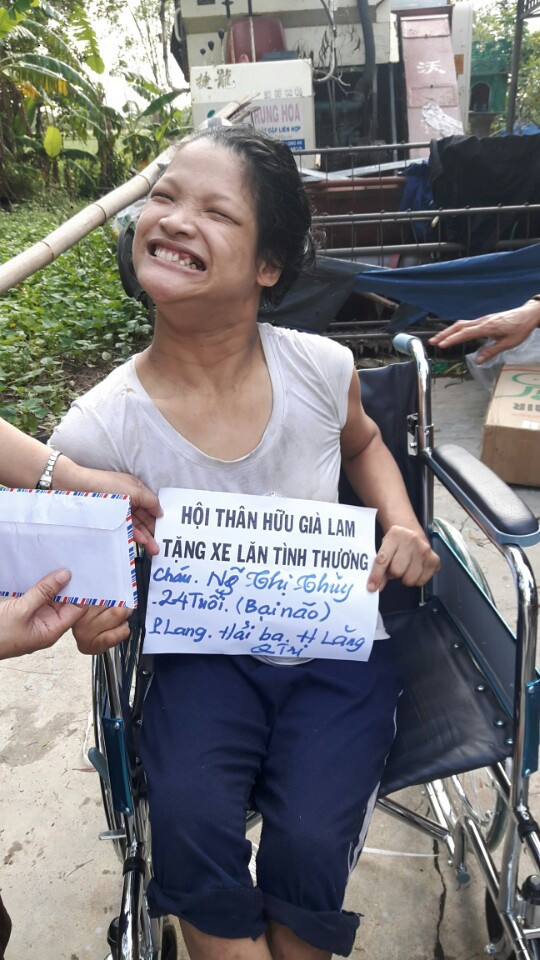 捷龍
TRUNG HOA
GẶT ĐẬP LIÊN HỢP
沃
HỘI THÂN HỮU GIÀ LAM
TẶNG XE LĂN TÌNH THƯƠNG
Cháu. Ng Thị Thủy
24 Tuổi. (Bại não)
Lang. Hải ba. H Lăng
Q Trị